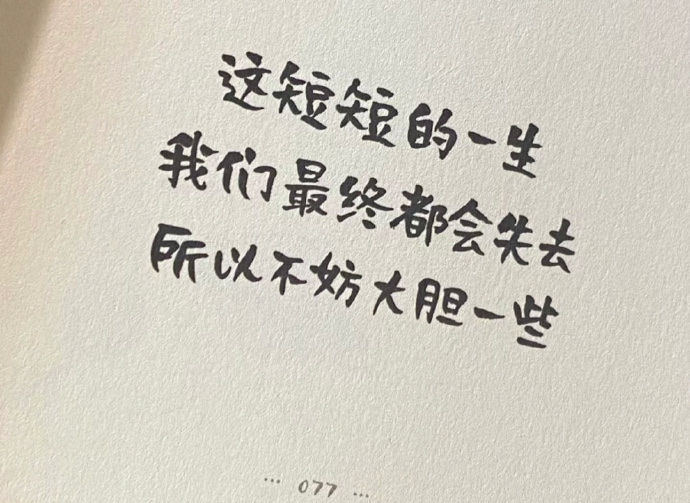 这短短的一生
我们最终都会失去
所以不妨大胆一些
... 077 ...